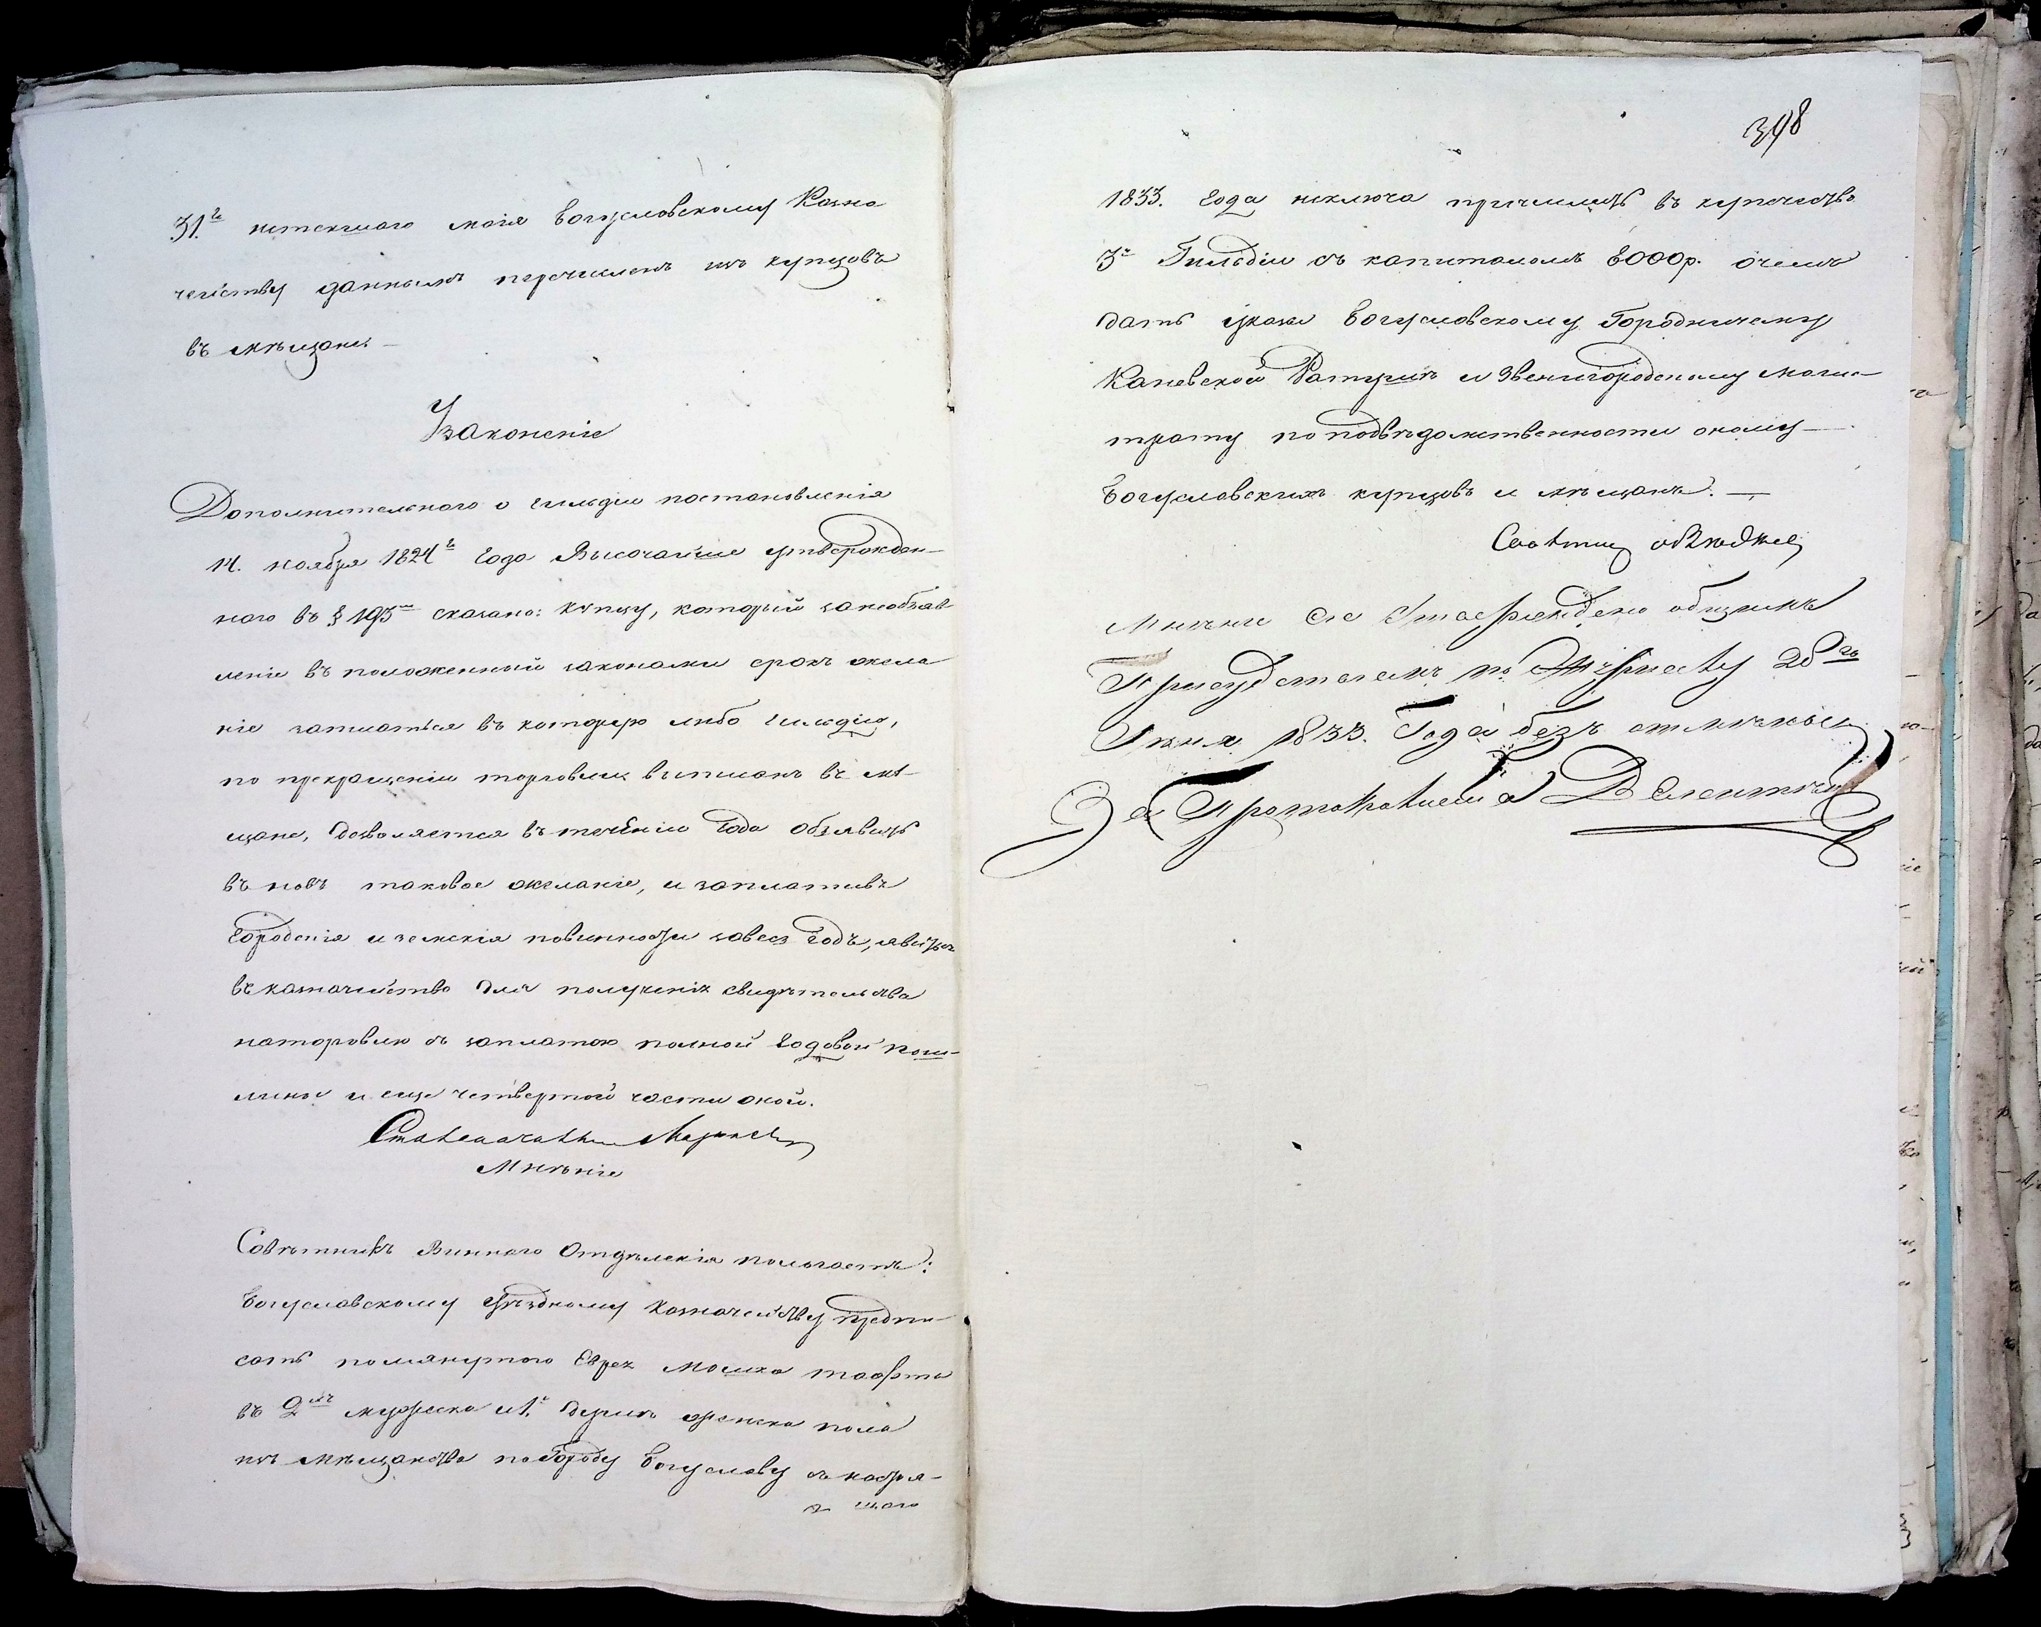 31.го истекшаго маія Богуславскому Казна
чейству даннымъ перечисленъ изъ купцовъ
въ мѣщане. —
Узаконеніе
Дополнительнаго о гильдіи постановленія
14. ноября 1824го Года Высочайше утвержден-
наго въ § 193м сказано: купцу, который занеобъяв-
леніе въ положенный законами срокъ жела
ніе записаться въ которую либо гильдію,
по прекращеніи торговли выписанъ въ мѣ-
щане, дозволяется въ теченіи Года объявить
въ новѣ таковое желаніе, и заплативъ
Городскія и земскія повинности завесь Годъ, явиться
въ казначейство для полученія свидѣтельства
наторговлю съ заплатою полной Годовой пош-
лины и еще четвертой части оной.
Мнѣніе
Совѣтникъ Виннаго Отдѣленія полагаетъ:
Богуславскому Уѣздному Казначейству предпи-
сать помянутого Еврея Мошка
въ 2хъ мужеска и 1й души женска пола
изъ мѣщанства по Городу Богуславу съ настоя-
щаго
398
1833. Года исключа причислить въ купечество
3й Гильдіи съ капиталомъ 8000р. очемъ
дать указы Богуславскому Городничему
Каневской Ратушѣ и Звенигородскому Маги-
страту по подвѣдомственности оному —
Богуславскихъ купцовъ и мѣщанъ. —
Мнѣніе сіе Утверждено общимъ
Присудствіемъ по Журналу 26го
Іюня 1833. Года безъ отмѣны
За Протоколиста